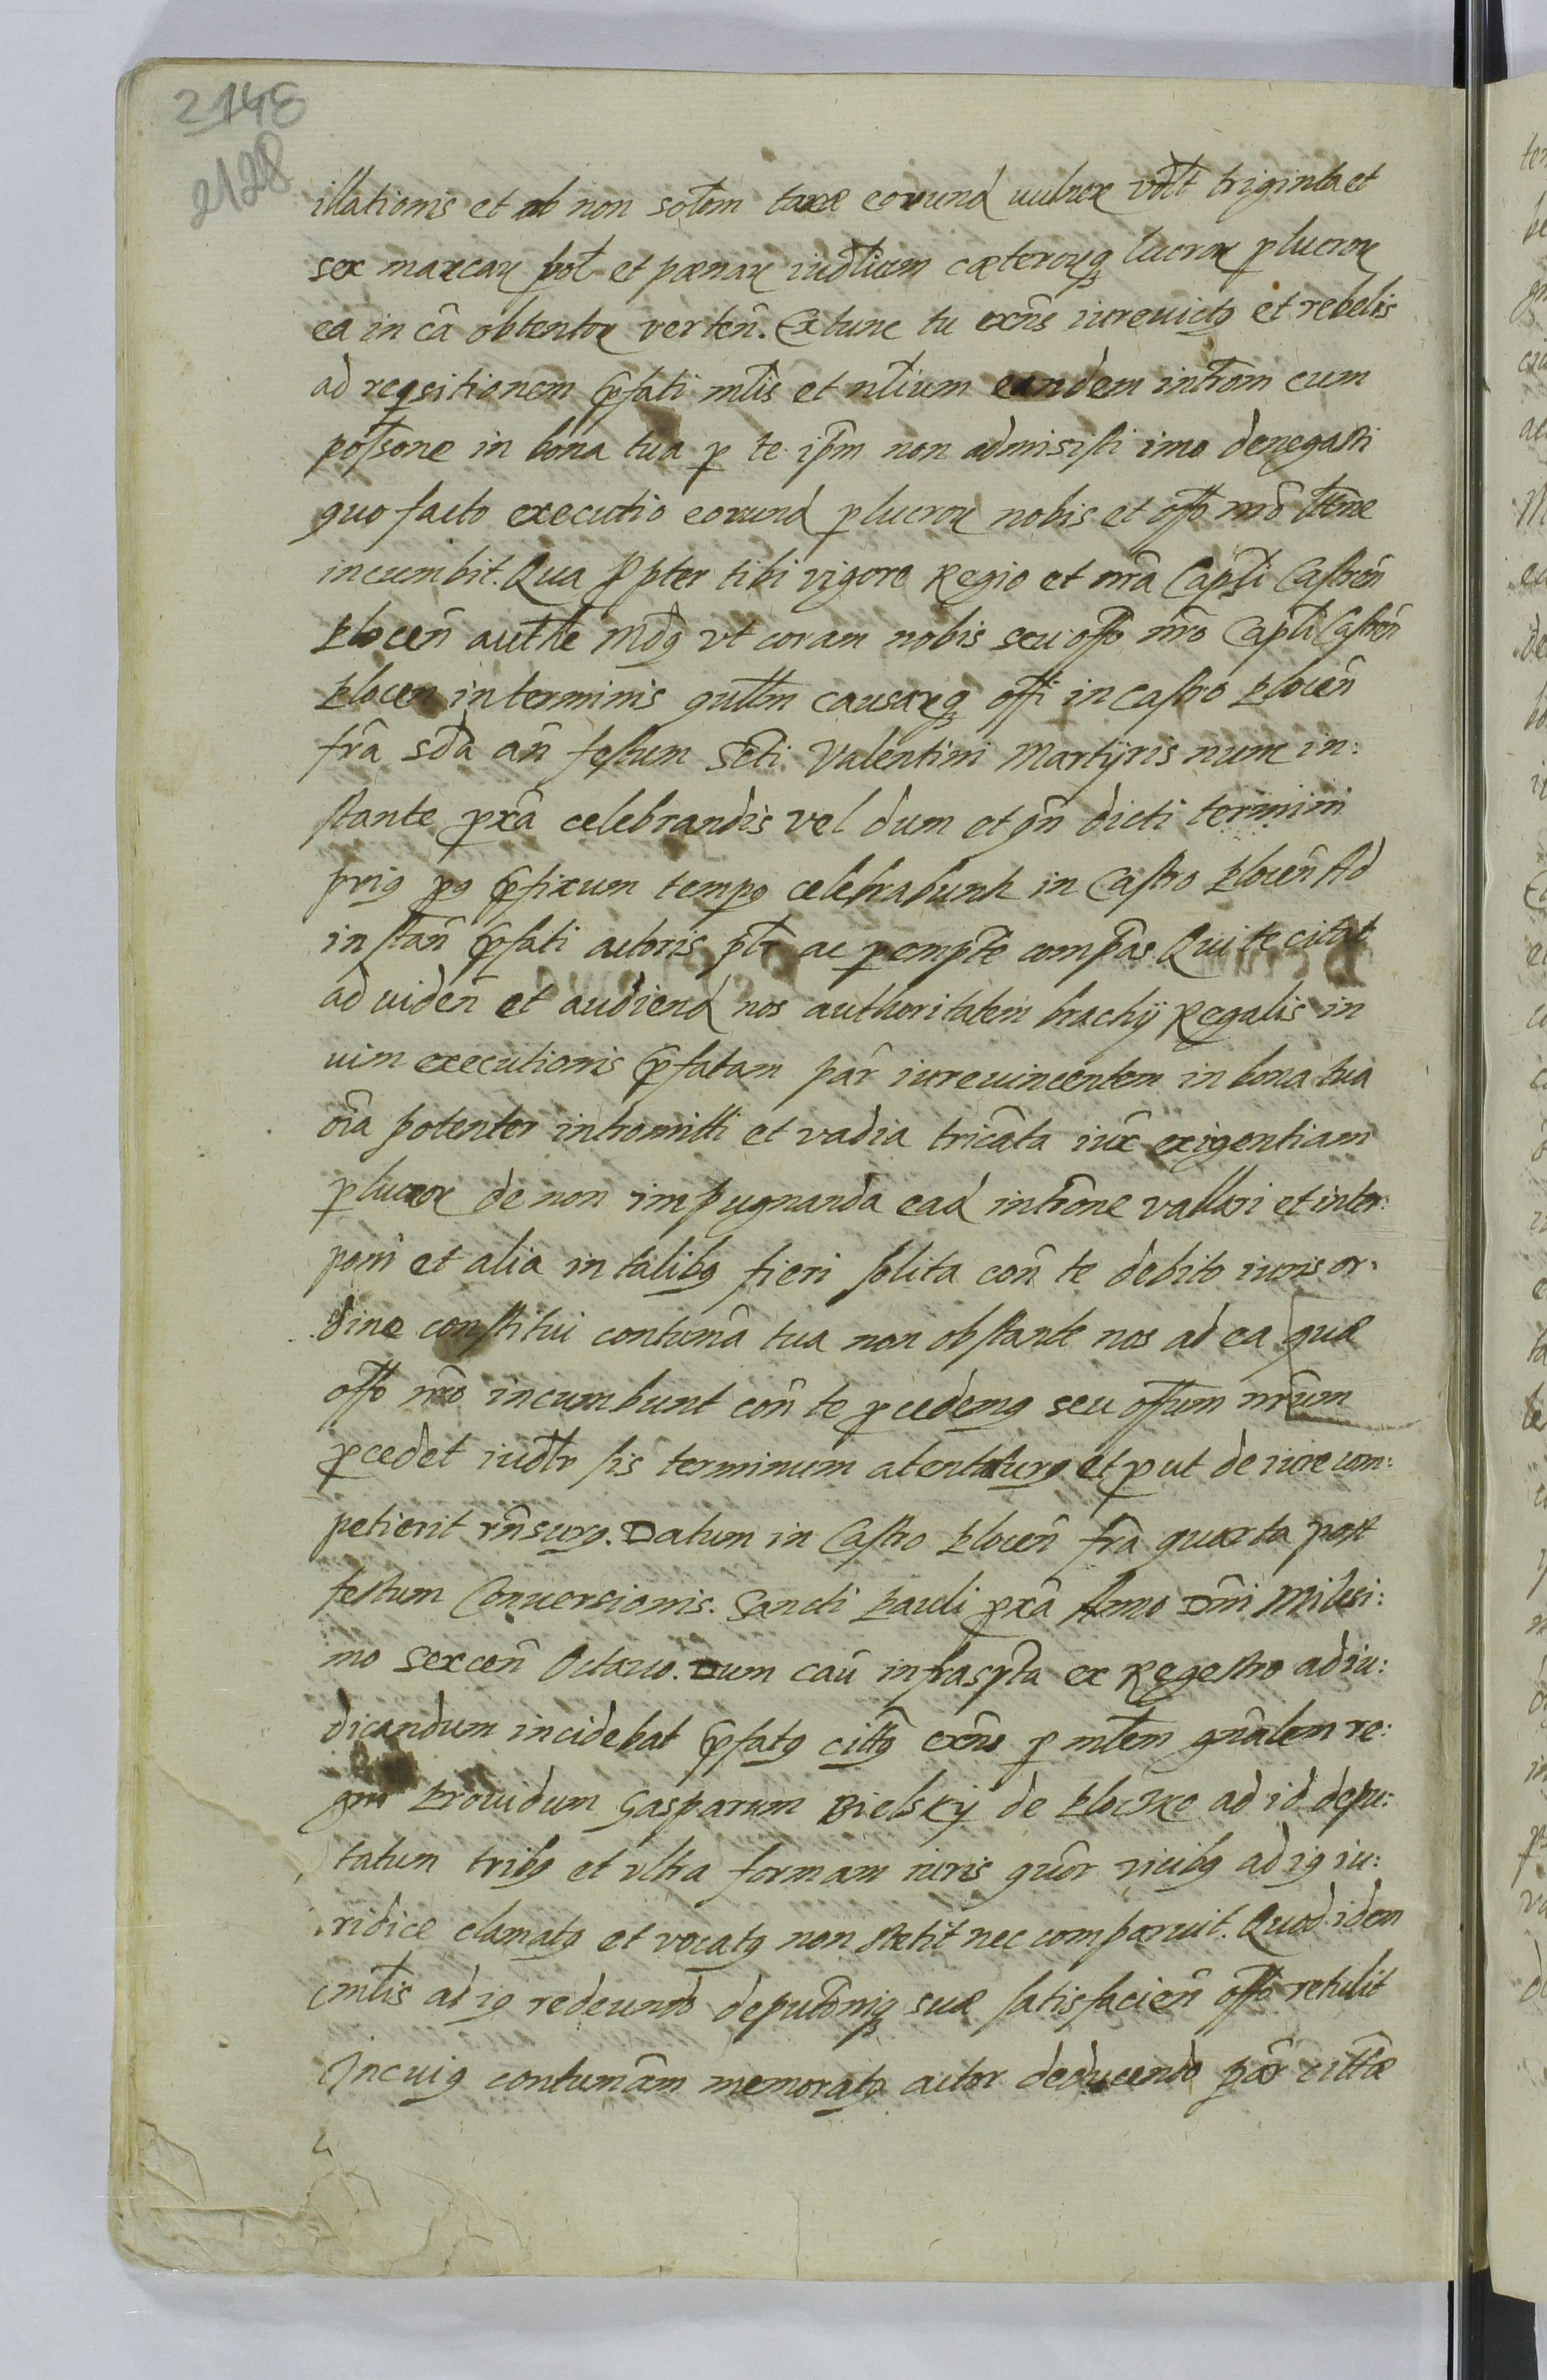 2148
2128
illationis et ob non solom taxæ eorund vulner vdlt triginta et
sex marcar pol et pœnar iudlium cæterorq lucror plucror
ea in cā obtentor verten. Extunc tu exn̄s iureuictq et rebelis
ad reqsitionem p̄fati mtis et nlium eandem introm cum
possone in bona tua p te ipm non admisisti imo denegasti
quo facto executio eorund plucror nobis et offo nrō
incumbit. Qua ppter tibi vigore Regio et nrā Capli Castren̄
Plocen̄ authe Mdq vt coram nobis seu offo nrō Capli Castren̄
Plocen in terminis qullm causarq offi in Castro Plocen̄
frā sdā an̄ festum Scti Valentini Martyris nunc in:
stante pxā celebrandis vel dum et qn̄ dicti termini
priq pq p̄fixum tempq celebrabunt in Castro Plocen̄ Ad
instan̄ p̄fati actoris plr ac pempte compas Qui te citat
ad uiden̄ et audiend nos authoritatem brachij Regalis in
uim executionis p̄fatam par̄ iureuincentem in bona tua
oīa potenter intromitti et vadia tricāta iux̄ exigentiam
plucror de non impugnanda ead intrōne vallari et inter:
poni et alia in talibq fieri solita con̄ te debito iuris or:
dine constitui contumā tua non obstante nos ad ea quæ
offo nrō incumbunt con̄ te pcedemq seu offum nrūm
pcedet iudlr sis terminum atentaturq et put de iure com:
petierit rn̄surq. Datum in Castro Plocen̄ frā quarta post
festum Conuersionis Sancti Pauli pxā Anno Dni Milesi:
mo sexcen̄ Octauo. Dum cau infrascpta ex Regestro ad iu:
dicandum incidebat p̄fatq cittq exn̄s p mtem gnālem re:
gni Prouidum Gasparum Bielskij de Plocke ad id depu:
tatum tribq et vltra formam iuris quor vicibq ad iq iu:
ridice clamatq et vocatq non stetit nec comparuit. Quod idem
mtis ad iq redeundo deputōniq suæ satisfacien̄ offo retulit
In cuiq contumām memoratq actor deducendo pār cittæ